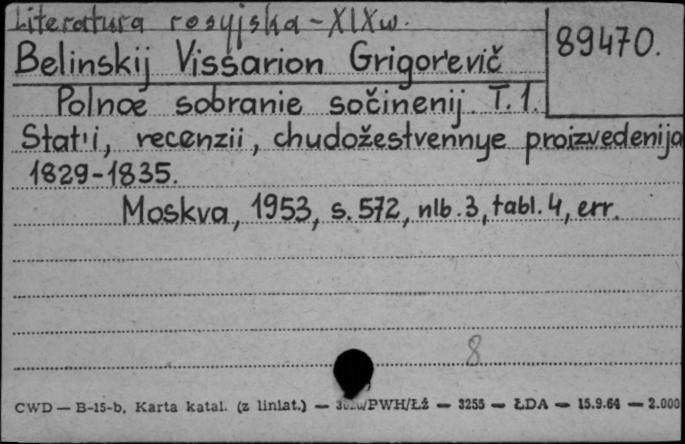 Literatura rosyjska - XIX w.
89470.
Belinskij Vissarion Grigor'evič
Polnoe sobranie sočinenij. T. 1.
Stat'i, recenzii, chudožestvennye proizvedenija
1829-1835.
Moskva, 1953, s. 572, nlb. 3, tabl. 4, err.
8
CWD — B-15-b. Karta katal. (z liniat.) — /PWH/ŁŻ — 3255 — ŁDA — 15.9.64 — 2.000